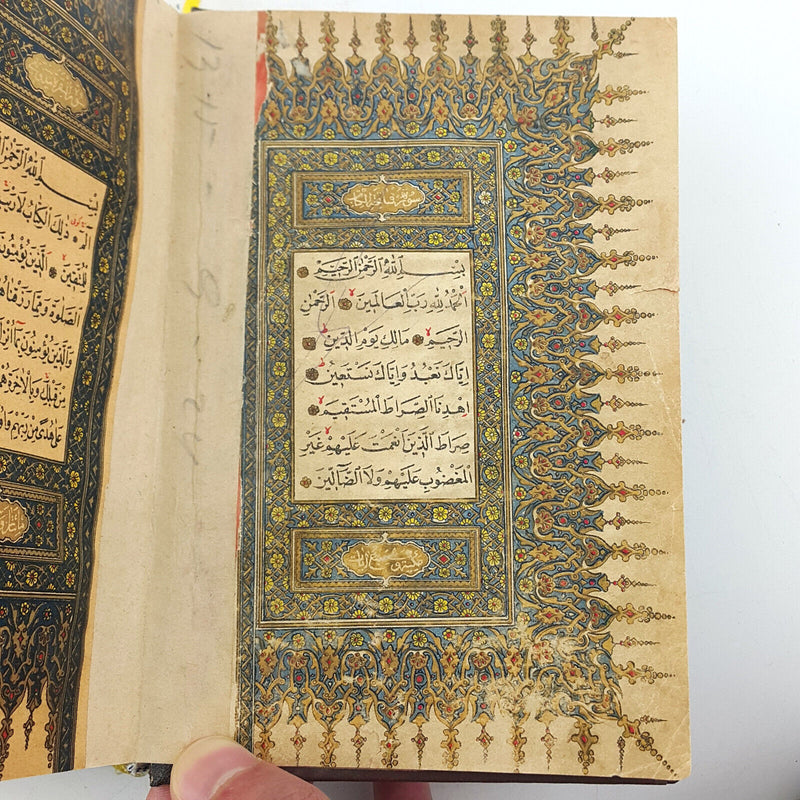 سورة فاتحة الكتاب
بِسْمِ اللهِ الرَّحْمٰنِ الرَّحِيمِ
اَلْحَمْدُ لِلّٰهِ رَبِّ الْعَالَمِينَ الرَّحْمٰنِ
الرَّحِيمِ مَالِكِ يَوْمِ الدِّينِ
اِيَّاكَ نَعْبُدُ وَاِيَّاكَ نَسْتَعِينُ
اِهْدِنَا الصِّرَاطَ الْمُسْتَقِيمَ
صِرَاطَ الَّذِينَ اَنْعَمْتَ عَلَيْهِمْ غَيْرِ
الْمَغْضُوبِ عَلَيْهِمْ وَلَا الضَّٓالِّينَ
بِسْمِ اللهِ الرَّحْمٰنِ
الٓمٓ ذٰلِكَ الْكِتَابُ لَا رَيْبَ
لِلْمُتَّقِينَ الَّذِينَ يُؤْمِنُونَ
الصَّلٰوةَ وَمِمَّا رَزَقْنَاهُمْ
وَالَّذِينَ يُؤْمِنُونَ بِمَٓا اُنْزِلَ
مِنْ قَبْلِكَ وَبِالْاٰخِرَةِ هُمْ
عَلٰى هُدًى مِنْ رَبِّهِمْ